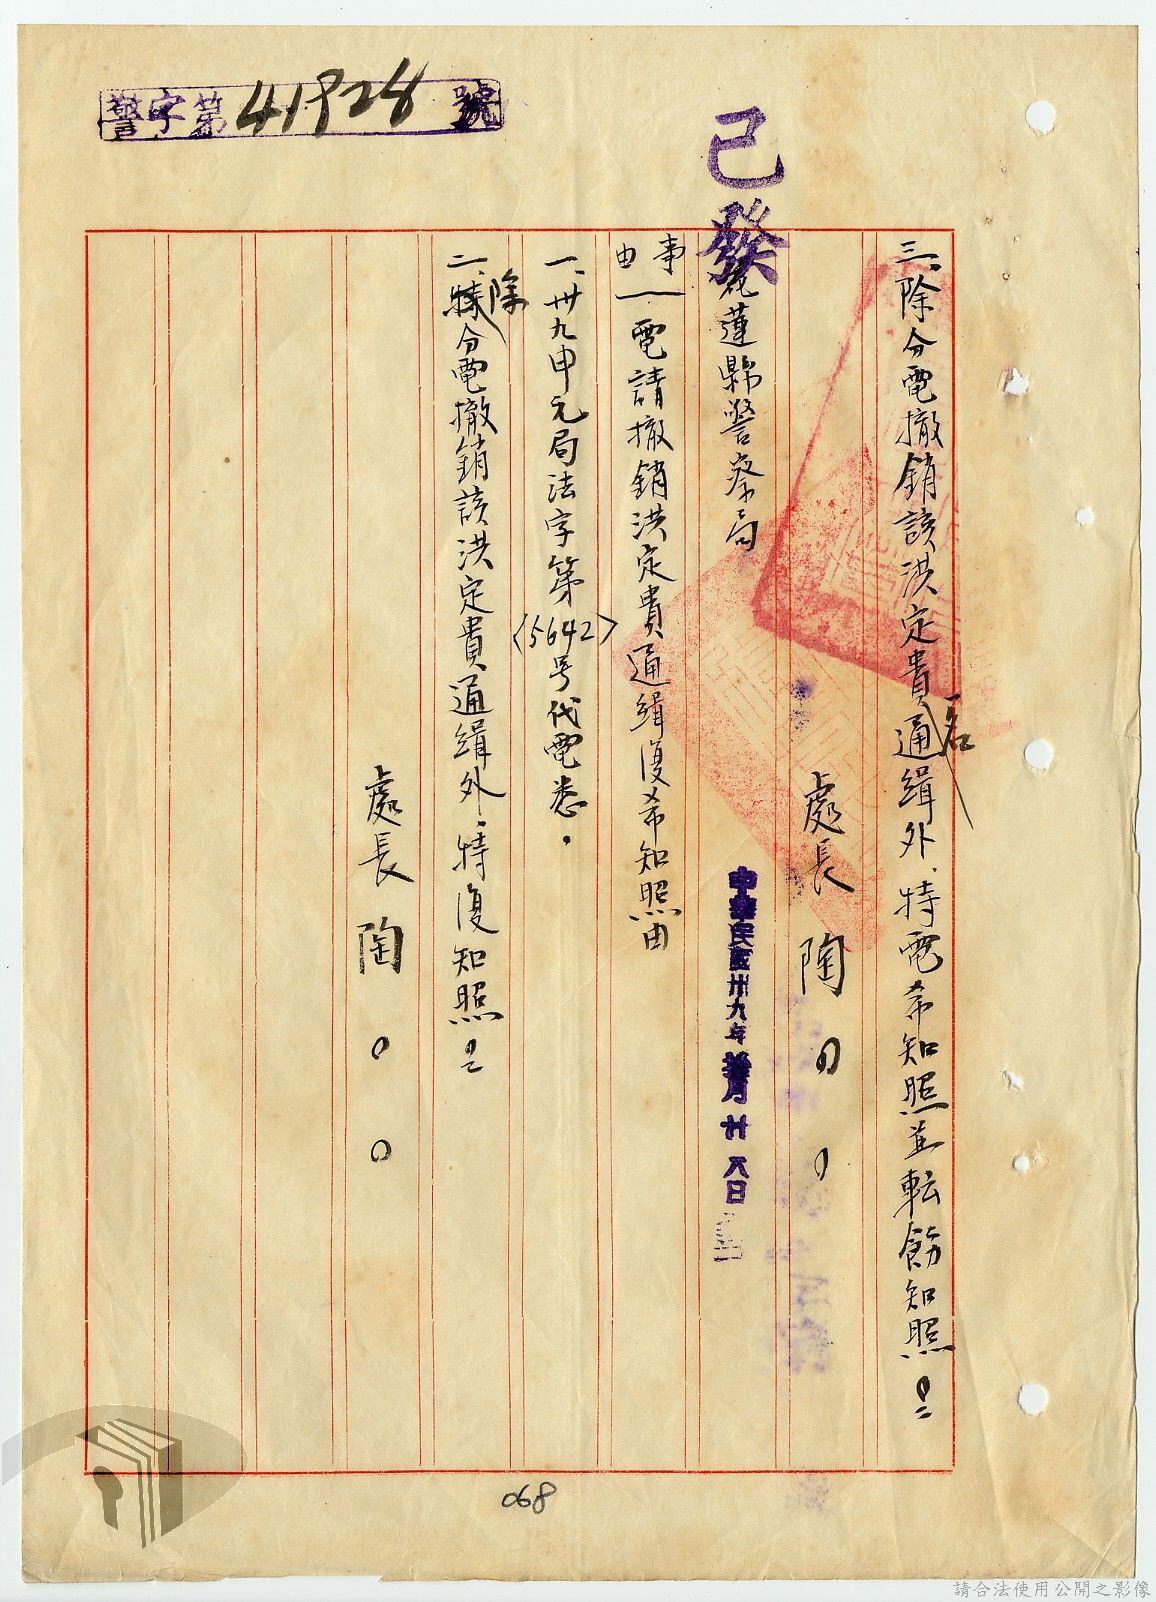 警字第41928號
已發
三、除分電撤銷該洪定貴一名通緝外、特電希知照並転飭知照！
處長 陶
花蓮縣警察局
中華民國卅九年 月廿八日
事由 電請撤銷洪定貴通緝復希知照由
一、卅九申元局法字第(5642)号代電悉。
二、除分電撤銷該洪定貴通緝外、特復知照！
處長 陶○○
068
請合法使用公開之影像